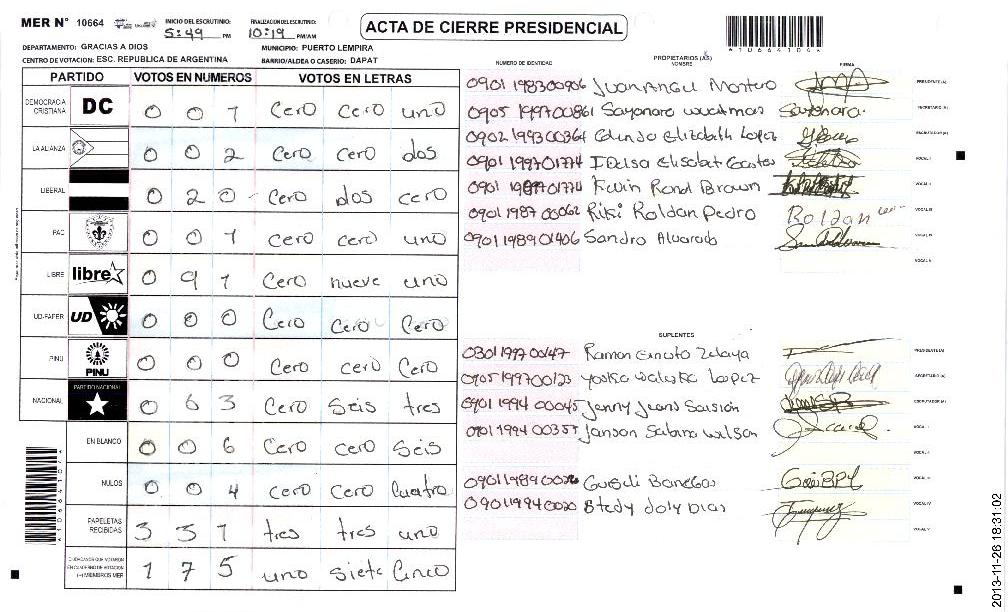 MER N° 10664
INICIO DEL ESCRUTINIO: 5:49 PM
FINALIZACION DEL ESCRUTINIO: 10:19 PM/AM
ACTA DE CIERRE PRESIDENCIAL
DEPARTAMENTO: GRACIAS A DIOS
MUNICIPIO: PUERTO LEMPIRA
CENTRO DE VOTACION: ESC. REPUBLICA DE ARGENTINA
BARRIO/ALDEA O CASERIO: DAPAT
PARTIDO VOTOS EN NUMEROS VOTOS EN LETRAS
DEMOCRACIA CRISTIANA DC 0 0 1 cero cero uno
LA ALIANZA 0 0 2 cero cero dos
LIBERAL 0 2 0 - cero dos cero
PAC 0 0 1 cero cero uno
LIBRE libre 0 9 1 cero nueve uno
UD-FAPER UD 0 0 0 cero cero cero
PINU PINU 0 0 0 cero cero cero
NACIONAL PARTIDO NACIONAL 0 6 3 cero seis tres
EN BLANCO 0 0 6 cero cero seis
NULOS 0 0 4 cero cero cuatro
PAPELETAS RECIBIDAS 3 3 1 tres tres uno
CIUDADANOS QUE VOTARON EN CUADERNO DE VOTACION (+) MIEMBROS MER 1 7 5 uno siete cinco
NUMERO DE IDENTIDAD
PROPIETARIOS (AS)
NOMBRE
FIRMA
0901198300906 Juan Montero PRESIDENTE(A)
0905199700861 Sayonara SECRETARIO (A)
0902199300364 Elizabeth Lopez ESCRUTADOR (A)
0901199701774 VOCAL I
Kevin Rond Brown VOCAL II
0901198700062 Riki Roldan Pedro VOCAL III
0901198901406 Sandro Alvarado VOCAL IV
VOCAL V
SUPLENTES
0301199700147 Ramon Zelaya PRESIDENTE(A)
0905199700123 Lopez SECRETARIO (A)
0901199400045 Jenny ESCRUTADOR (A)
0901199400357 Janson Sabino Wilson VOCAL I
VOCAL II
Banegas VOCAL III
VOCAL IV
VOCAL V
2013-11-26 18:31:02